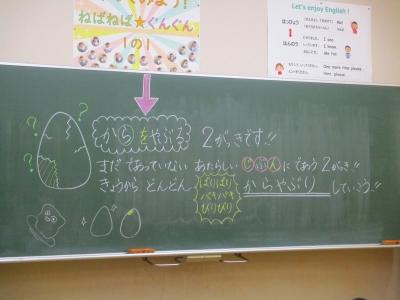 ねばねば★ぐんぐん
1の1
Let's enjoy English!
はっけん
はんのう
I see.
Me too.
One more time please.
Hint, please.
からをやぶる 2がっきです!!
まだ であっていない あたらしい じぶん にであう 2がっき!!
きょうから どんどん ばりばり バキバキ びりびり からやぶり していこう!!
? ? ?